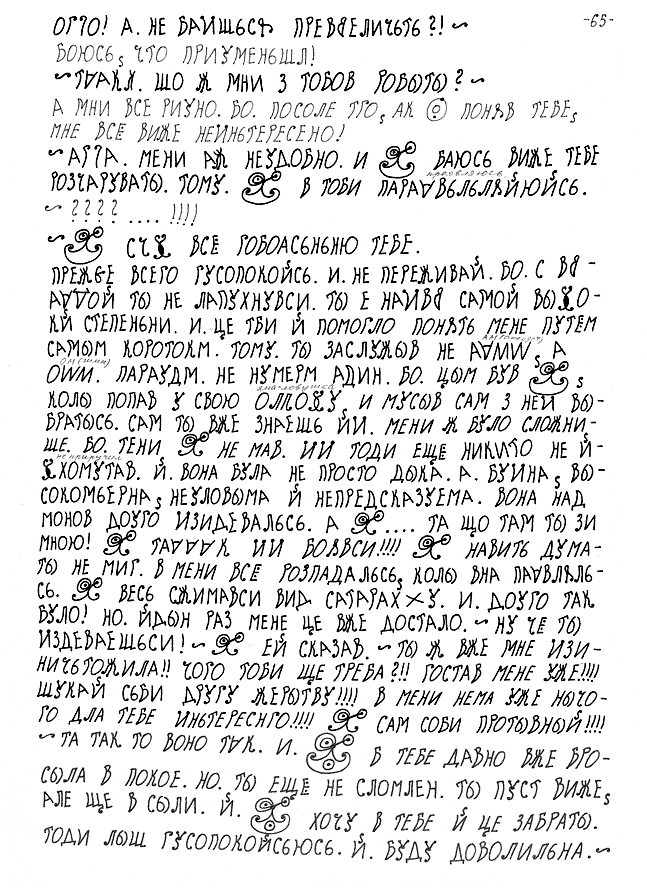 -65-
ОГГО! А. НЕ БАИШЬСЯ ПРЕВВЕЛИЧЬТЬ?! ~
БОЮСЬ, ЧТО ПРИУМЕНЬШЛ!
~ ЩО Ж МНИ З ТОБОВ РОБЫТЫ? ~
А МНИ ВСЕ РИУНО. БО. ПОСОЛЕ ТГО, АК ПОНЯВ ТЕБЕ,
МНЕ ВСЁ ВИЖЕ НЕИНЬТЕРЕСЕНО!
~ АГГА. МЕНИ АЖ НЕУДОБНО. И БАЮСЬ ВИЖЕ ТЕБЕ
проявляюсь
РОЗЧАРУВАТЫ. ТОМУ. В ТОБИ
~ ???? .... !!!!
~ ВСЁ ТЕБЕ.
ПРЕЖЬЕ ВСЕГО ГУСОПОКОЙСЬ. И. НЕ ПЕРЕЖИВАЙ. БО. С
ТЫ НЕ ЛАПУХНУВСИ. ТЫ Е САМОЙ
КИЙ СТЕПЕНЬНИ. И. ЦЕ ТБИ Й ПОМОГЛО ПОНЯТЬ МЕНЕ ПУТЕМ
САМЫМ КОРОТОКМ. ТОМУ. ТЫ ЗАСЛУЖЫВ НЕ А
OWM. ПАРАУДМ. НЕ НУМЕРМ АДИН. БО. ЦЫМ БУВ ,
яма-ловушка
КОЛЫ ПОПАВ У СВОЮ И МУСЫВ САМ З НЕЙ ВЫ-
БРАТЫСЬ. САМ ТЫ ВЖЕ ЗНАЕШЬ ЙИ. МЕНИ Ж БУЛО СЛОЖНИ-
ШЕ. БО. ТЕНИ НЕ МАВ. ИИ ТОДИ ЕЩЕ НИКЫТО НЕ Й-
не приручил
ХОМУТАВ. Й. ВОНА БУЛА НЕ ПРОСТО ДЫКА. А. БУИНА, ВЫ-
СОКОМЬЕРНА, НЕУЛОВЫМА Й НЕПРЕДСКАЗУЕМА. ВОНА НАД
МОНОВ ДОУГО ИЗИДЕВАЛЬСЬ. А .... ТА ЩО ТАМ ТЫ ЗИ
МНОЮ! ИИ БОЯВСИ!!!! НАВИТЬ ДУМА-
ТЫ НЕ МИГ. В МЕНИ ВСЁ РОЗПАДАЛЬСЬ, КОЛЫ ВНА
СЬ. ВЕСЬ СЖИМАВСИ ВИД И. ДОУГО ТАК
БУЛО! НО. ЙДЫН РАЗ МЕНЕ ЦЕ ВЖЕ ДОСТАЛО. ~ НУ ЧЕ ТЫ
ИЗДЕВАЕШЬСИ! ~ ЕЙ СКАЗАВ. ~ ТЫ Ж ВЖЕ МНЕ ИЗИ-
НИЧЬТОЖИЛА!! ЧОГО ТОБИ ЩЕ ТРЕБА?!! ГОСТАВ МЕНЕ УЖЕ!!!!
ШУКАЙ СЬБИ ДРУГУ ЖЕРЫТВУ!!!! В МЕНИ НЕМА УЖЕ НЫЧО-
ГО ДЛА ТЕБЕ ИНЬТЕРЕСНГО!!!! САМ СОБИ ПРОТЫВНЫЙ!!!!
~ ТА ТАК ТО ВОНО ТАК. И. Б ТЕБЕ ДАВНО ВЖЕ БРО-
СЫЛА В ПОКОЕ. НО. ТЫ ЕЩЕ НЕ СЛОМЛЕН. ТЫ ПУСТ ВИЖЕ,
АЛЕ ЩЕ В СЫЛИ. Й. ХОЧУ В ТЕБЕ Й ЦЕ ЗАБРАТЫ.
ТОДИ ЛЫШ ГУСОПОКОЙСЬЮСЬ. Й. БУДУ ДОВОЛИЛЬНА. ~